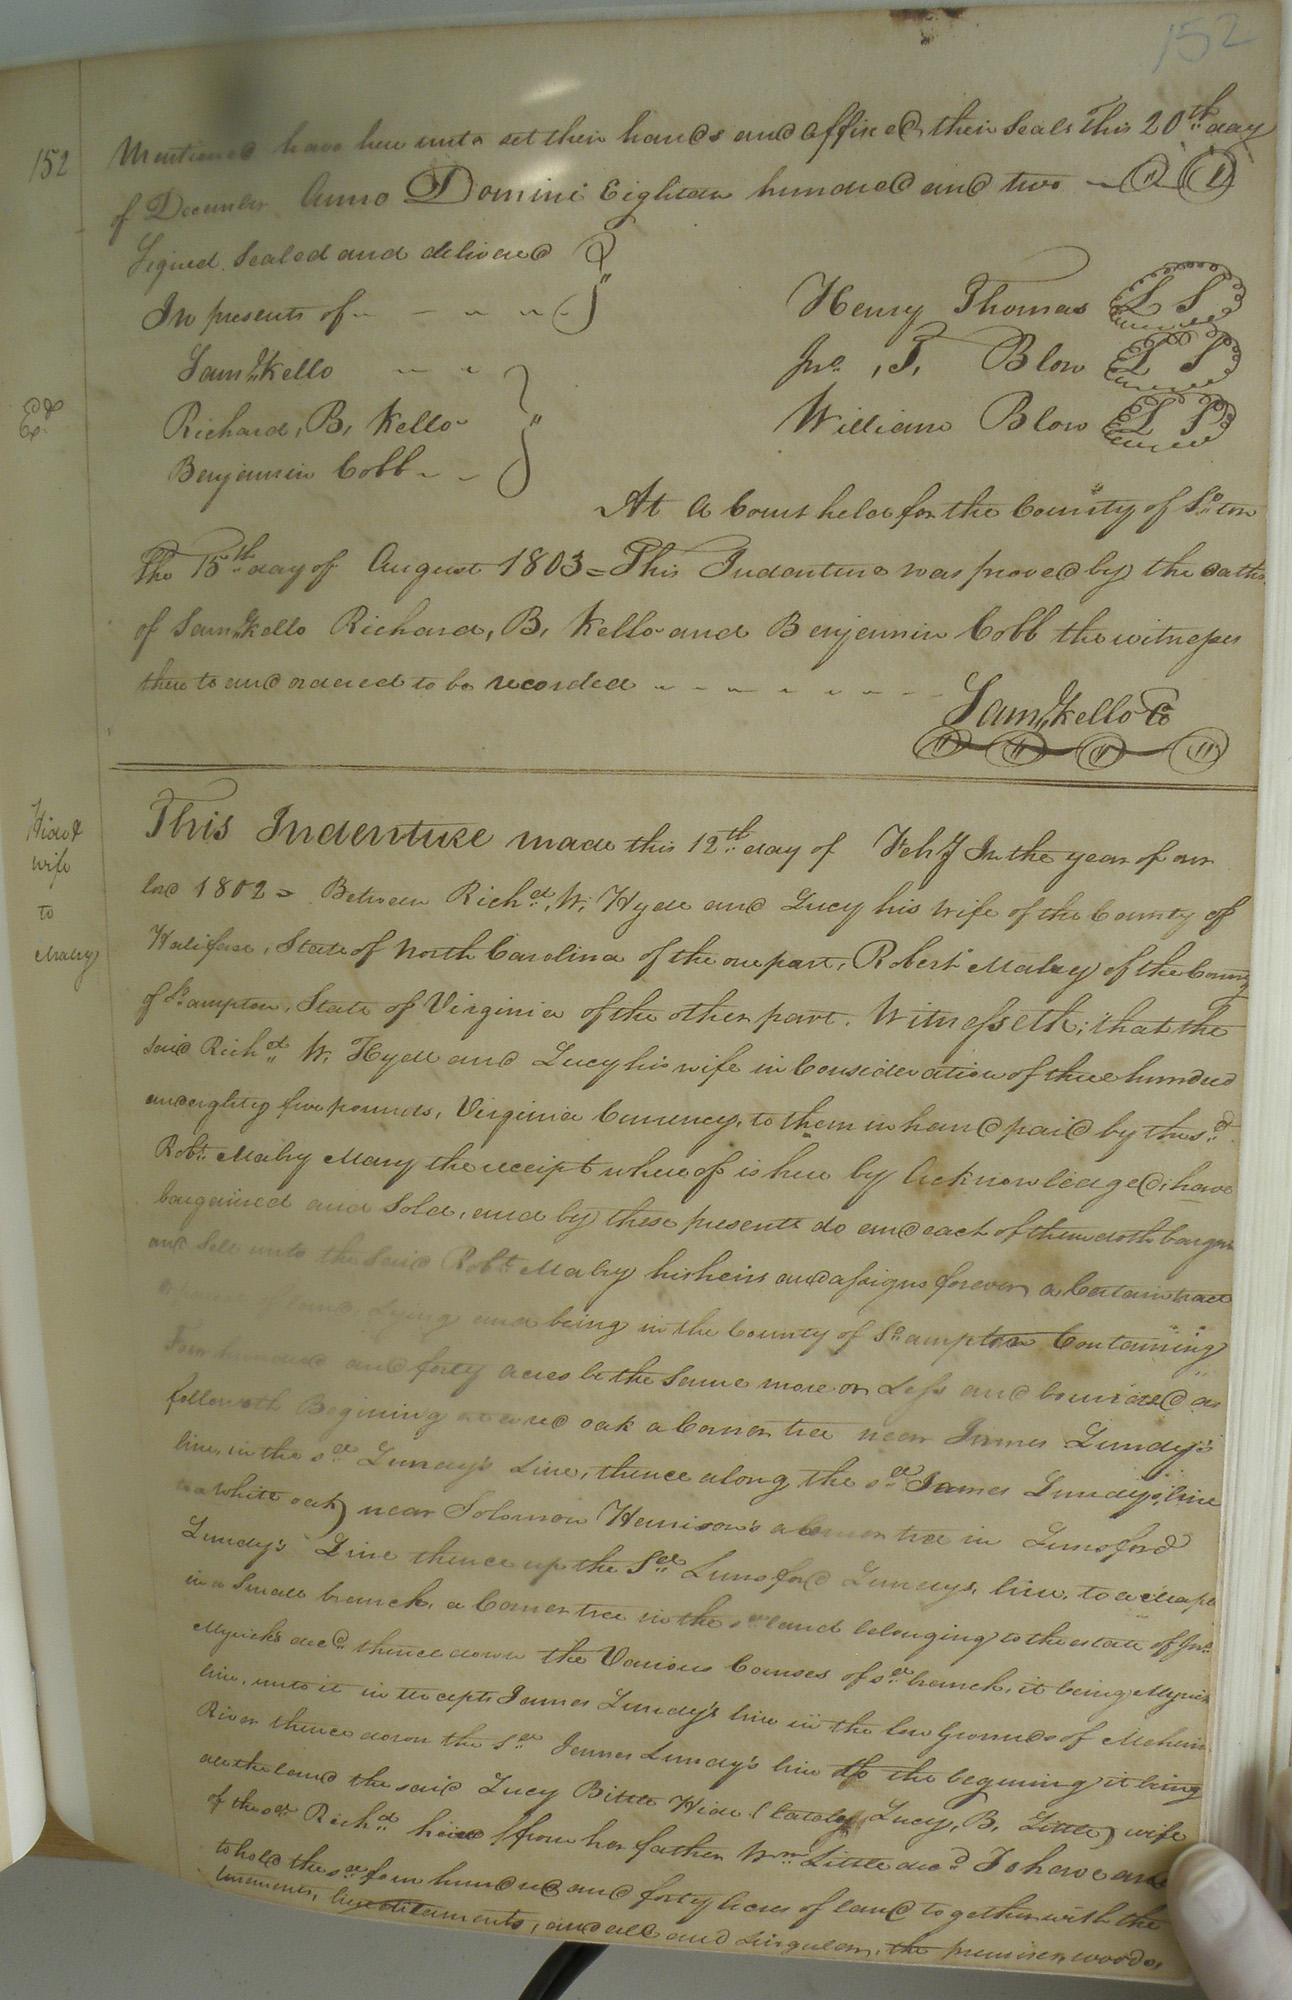 152
152
Mentioned have here unto set their hands and affixed their seals this 20th day
of December Anno Domini Eighteen hundred and two
Signed Sealed and delivered
In presents of
Henry Thomas L S
Saml. Kello
Jno. T. Blow L S
Exd.
Richard, B, Kello
William Blow L S
Benjamin Cobb
At a Court held for the County of So.ton
The 15th day of August 1803 = This Indenture was proved by the oaths
of Saml. Kello Richard, B, Kello and Benjamin Cobb the witnesses
there to and ordered to be recorded
Saml. Kello Cc
Hide &
wife
to
Mabry
This Indenture made this 12th day of Feby In the year of our
lord 1802 = Between Richd. W. Hyde and Lucy his wife of the County of
Halifax, State of North Carolina of the one part, Robert Mabry of the County
of So.ampton, State of Virginia of the other part. Witnesseth; that the
said Richd. W. Hyde and Lucy his wife in Consideration of three hundred
and eighty five pounds, Virginia Currency, to them in hand paid by the sd.
Robt. Mabry Mary the receipt where of is here by Acknowledged, have
bargained and Sold, and by these presents do and each of them doth bargain
and Sell unto the said Robt. Mabry his heirs and assigns forever, a Certain tract
of land, Lying and being in the County of So.ampton Containing
Four hundred and forty acres be the Same more or Less and bounded as
followeth Begining at a red oak a Corner tree near James Lundy's
line, in the sd. Lundy's Line, thence along the sd. James Lundy's, line
to a white oak, near Solomon Harrison's a Corner tree in Lunsford
Lundy's Line thence up the Sd. Lunsford Lundys, line, to a
in a Small branch, a Corner tree in the sd. land belonging to the estate of Jno.
Myrick's decd. thence down the Various Courses of sd. branch, it being Myrick
line, unto it intercepts James Lundy's line in the low Grounds of Meherin
River thence down the sd. James Lundy's line to the begening it being
all the land the said Lucy Bittle Hide (lately Lucy, B, Little) wife
of the sd. Richd. heird from her father Wm. Little decd. To have and
to hold the sd. four hundred and forty Acres of land together with the
tenements, hereditaments, and all and singular, the premises, woods,